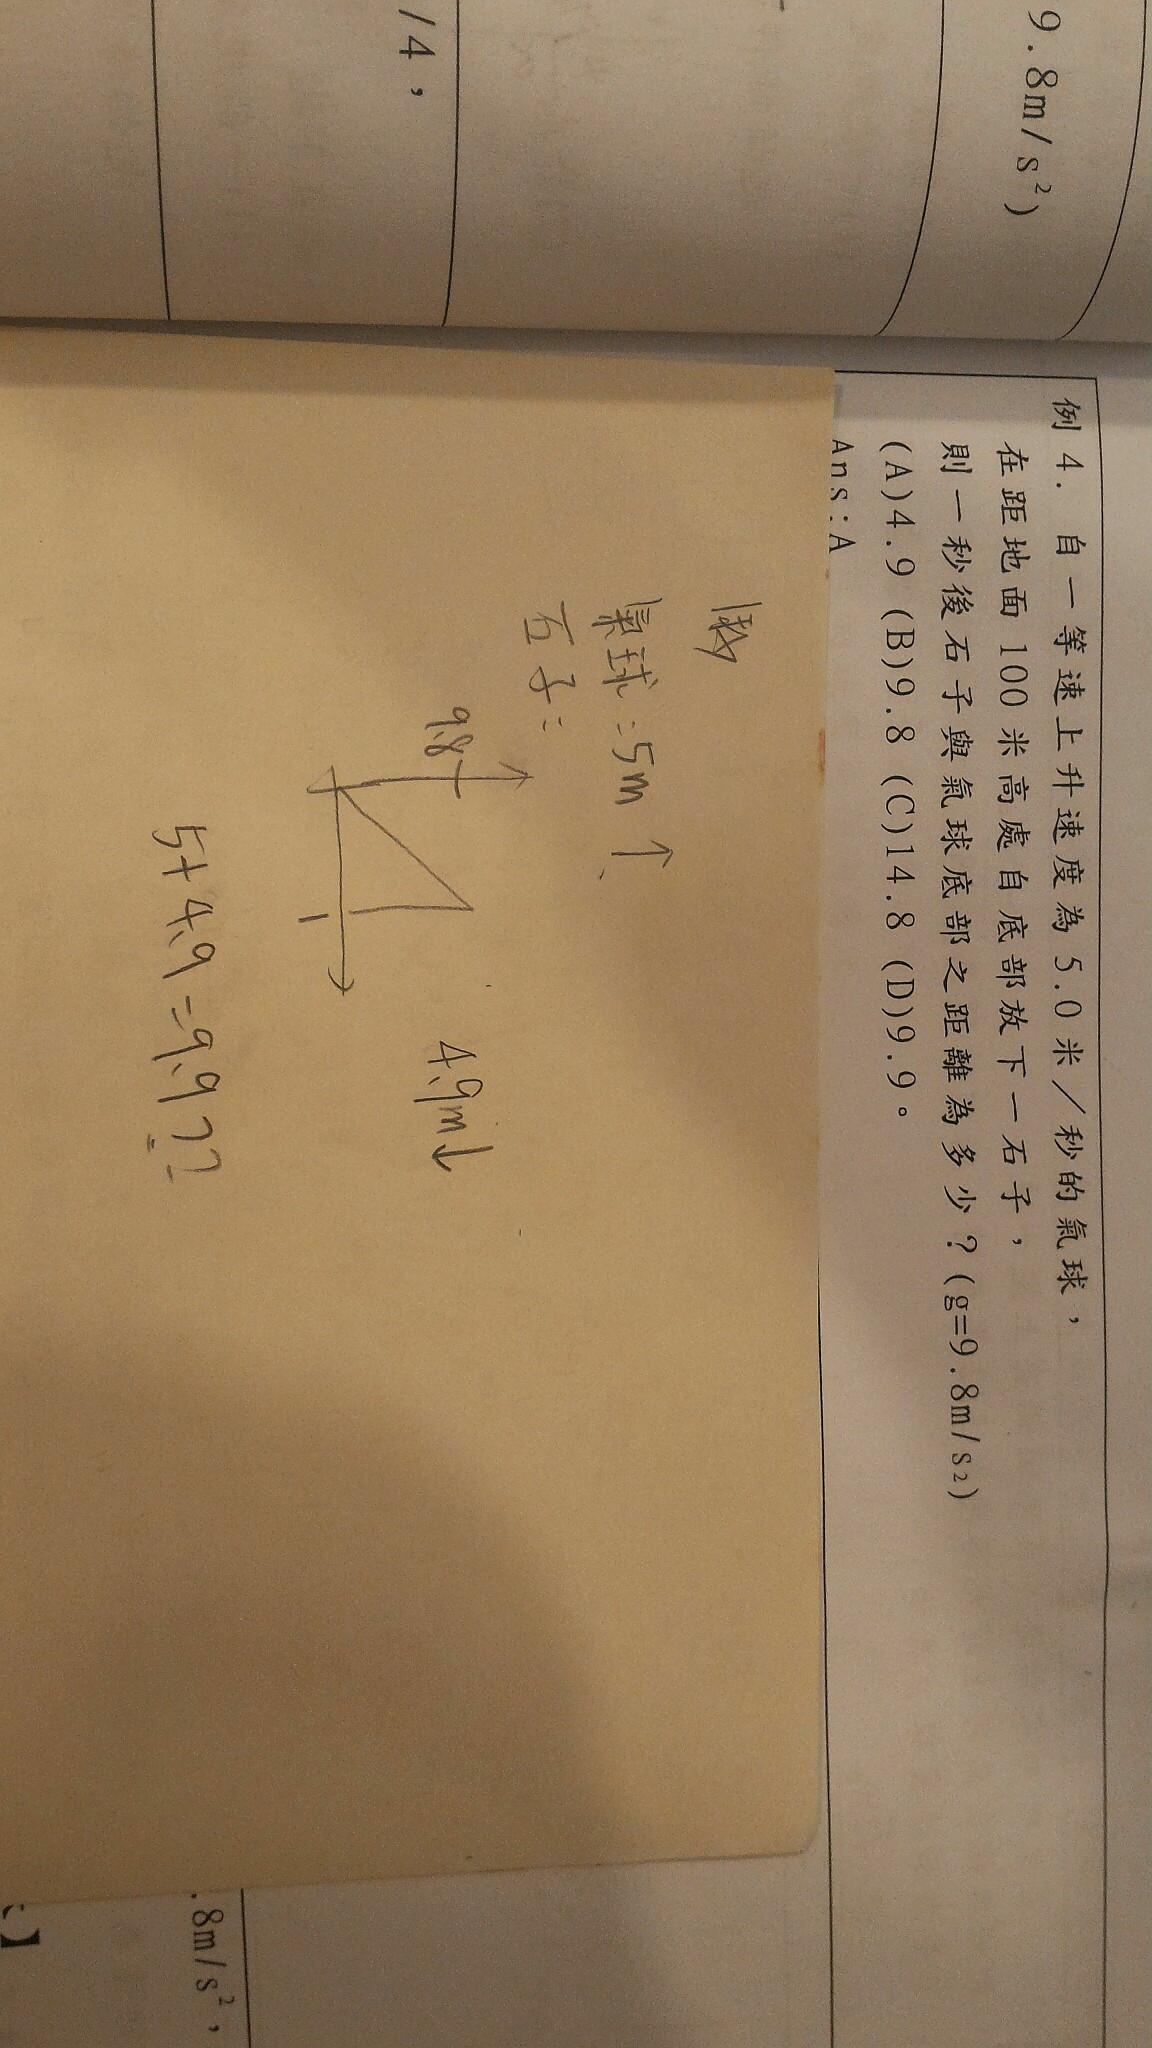 9.8m/s²)
/4，
例4. 自一等速上升速度為5.0米／秒的氣球，
在距地面100米高處自底部放下一石子，
則一秒後石子與氣球底部之距離為多少？(g=9.8m/s2)
(A)4.9 (B)9.8 (C)14.8 (D)9.9。
Ans:A
氣球：5m ↑
石子：
9.8
1
4.9m↓
5+4.9=9.9??
.8m/s²，
】